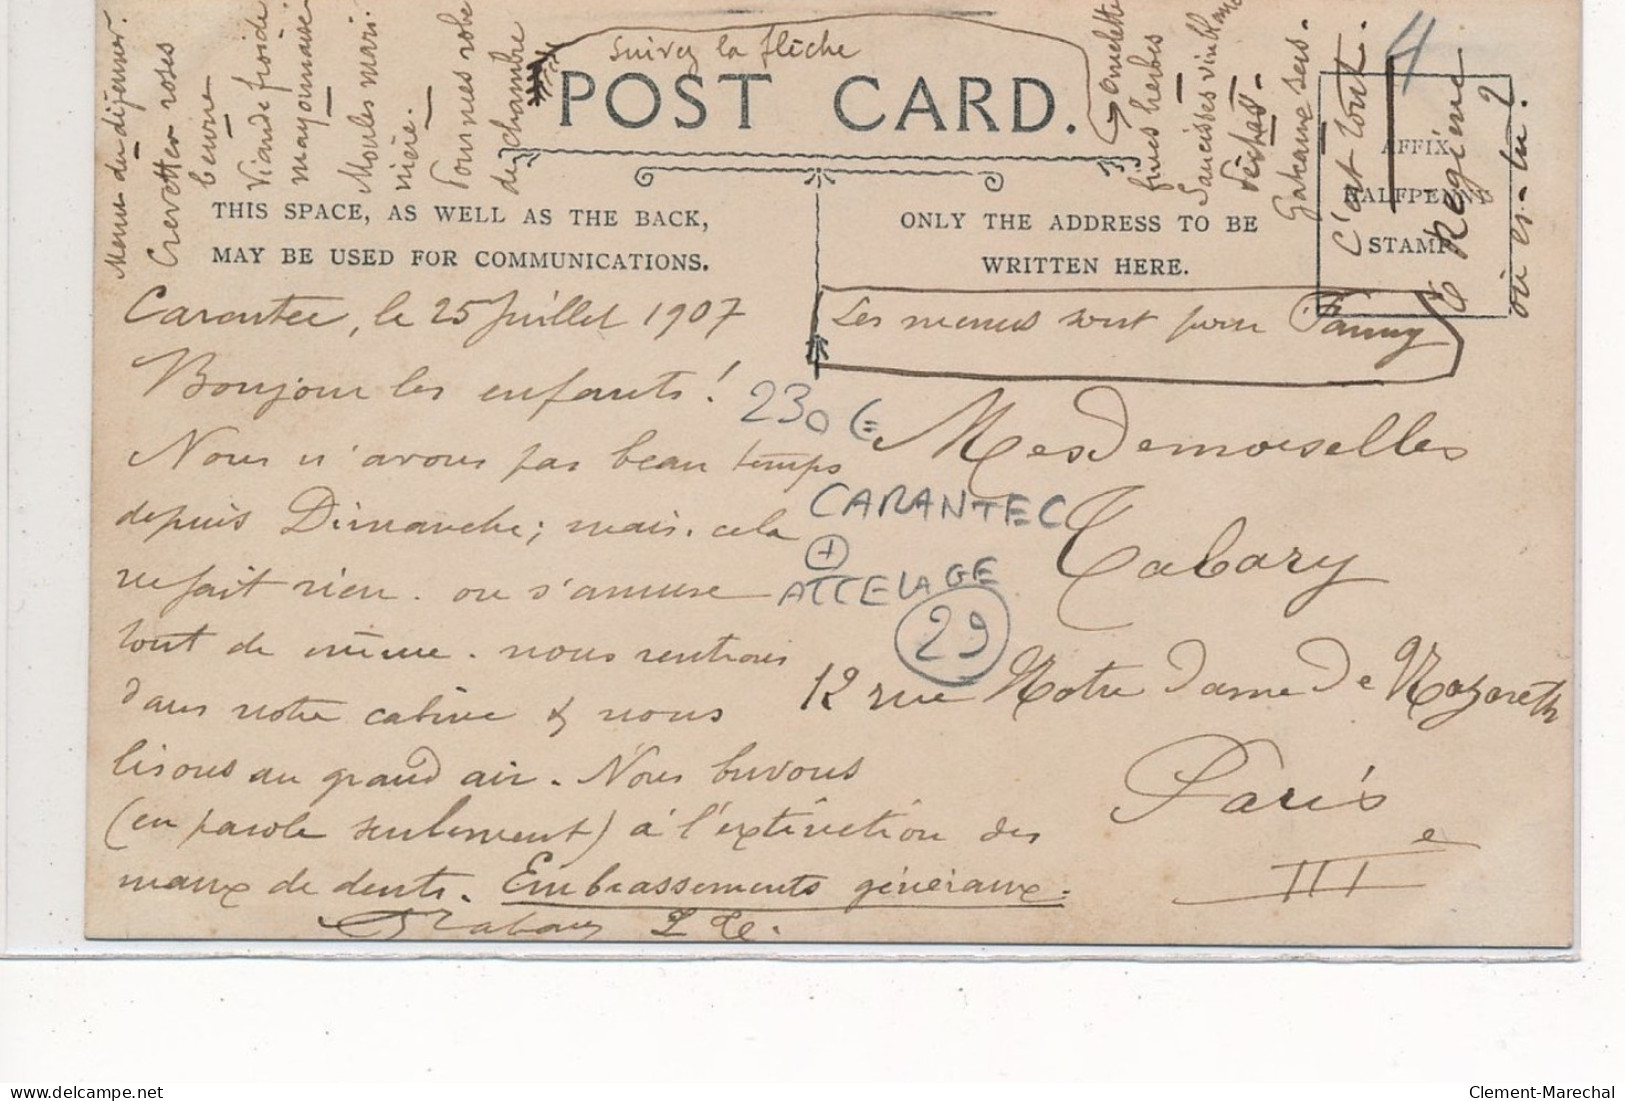 Menu du déjeuner.
Crevettes roses
beurre
Viande froide
mayonnaise.
Moules mari-
nière.
Pommes robe
de chambre
suivez la flèche
omelette
fines herbes
Saucisses vin blanc
Pêches
Gateaux secs.
C'est tout.
O Régime
où es-tu ?
4
POST CARD.
THIS SPACE, AS WELL AS THE BACK,
MAY BE USED FOR COMMUNICATIONS.
ONLY THE ADDRESS TO BE
WRITTEN HERE.
AFFIX
HALFPENNY
STAMP
Les menus sont pour Fanny
Carantec, le 25 Juillet 1907
Bonjour les enfants !
Nous n'avons pas beau temps
depuis Dimanche ; mais cela
ne fait rien. on s'amuse
tout de même. nous rentrons
dans notre cabine & nous
lisons au grand air. Nous buvons
(en parole seulement) à l'extinction des
maux de dents. Embrassements généraux.
Tabary
230 €
CARANTEC
+
ATTELAGE
29
MesDemoiselles
Tabary
12 rue Notre Dame De Nazareth
Paris
III e
Clement-Marechal